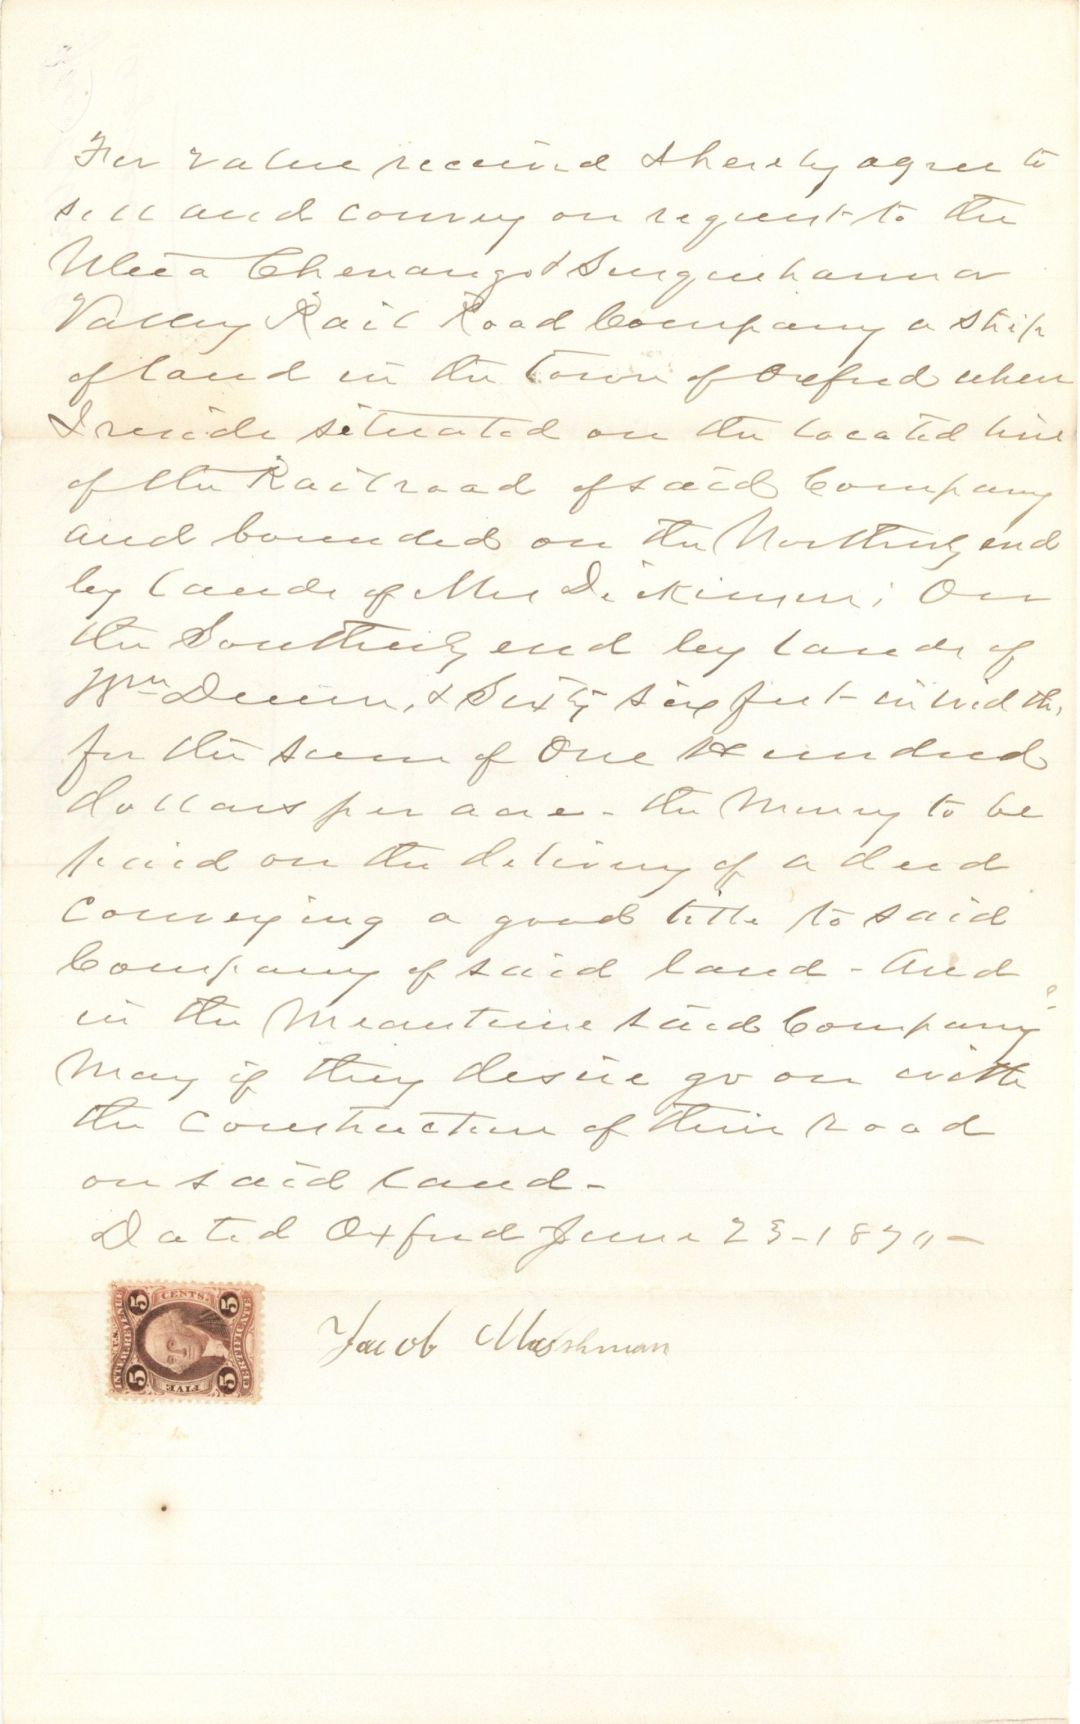 For value received I hereby agree to
sell and convey on request to the
Utica Chenango & Susquehanna
Valley Rail Road Company a strip
of land in the town of Oxford where
I reside situated on the located line
of the Railroad of said Company
and bounded on the Northerly end
by lands of Mrs Dickinson; On
the Southerly end by lands of
Wm Dunn, & Sixty six feet in width,
for the sum of One Hundred
dollars per acre - the Money to be
paid on the delivery of a deed
conveying a good title to said
Company of said land - And
in the Meantime said Company
May if they desire go on with
the Construction of their road
on said land -
Dated Oxford June 23 - 1870 -
Jacob
5 CENTS. 5
U.S. INTER. REVENUE
CERTIFICATE
5 FIVE 5